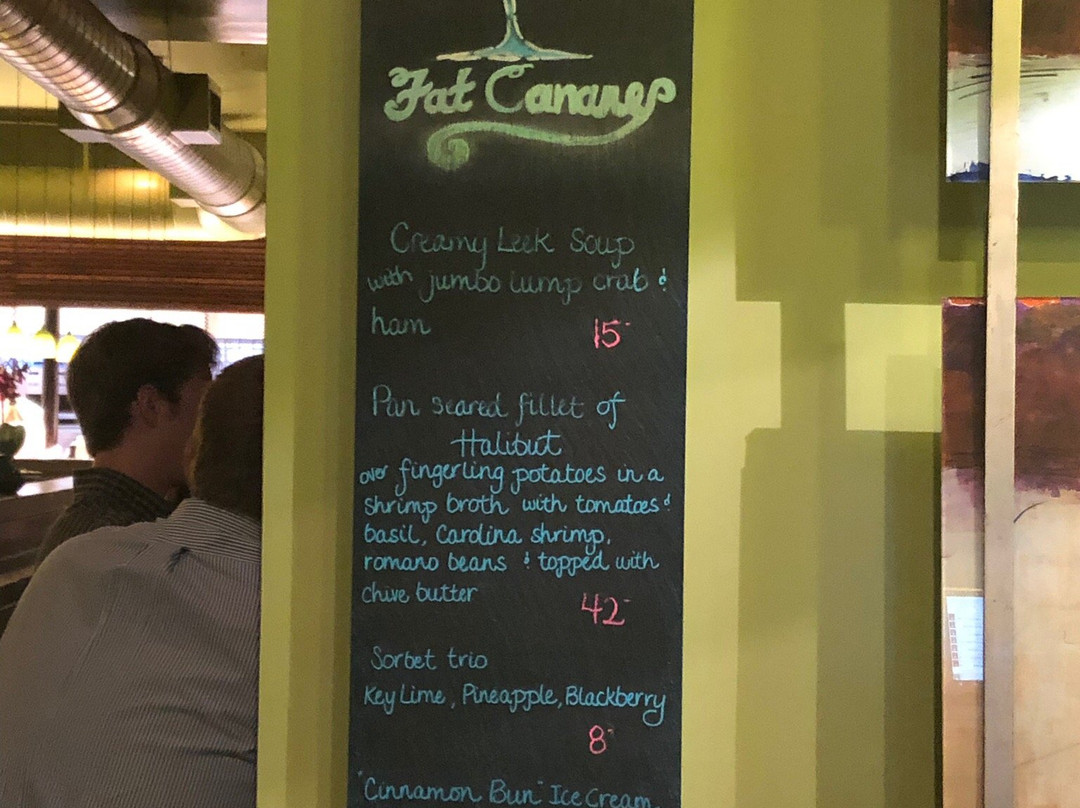 Fat Canary
Creamy Leek Soup
with jumbo lump crab &
ham 15-
Pan seared fillet of
Halibut
over fingerling potatoes in a
shrimp broth with tomatoes &
basil, Carolina shrimp,
romano beans & topped with
chive butter 42-
Sorbet trio
Key Lime, Pineapple, Blackberry
8-
"Cinnamon Bun" Ice Cream